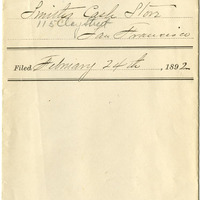 Smiths Cash Store
115 Clay street
San Francisco
Filed February 24th, 1892